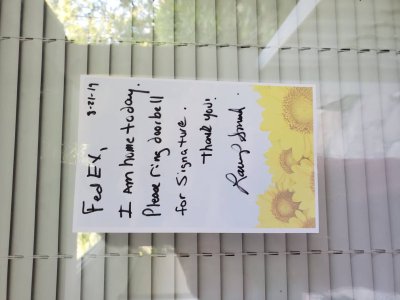 8-21-19
Fed EX,
I Am home today.
Please ring doorbell
for Signature.
Thank you!